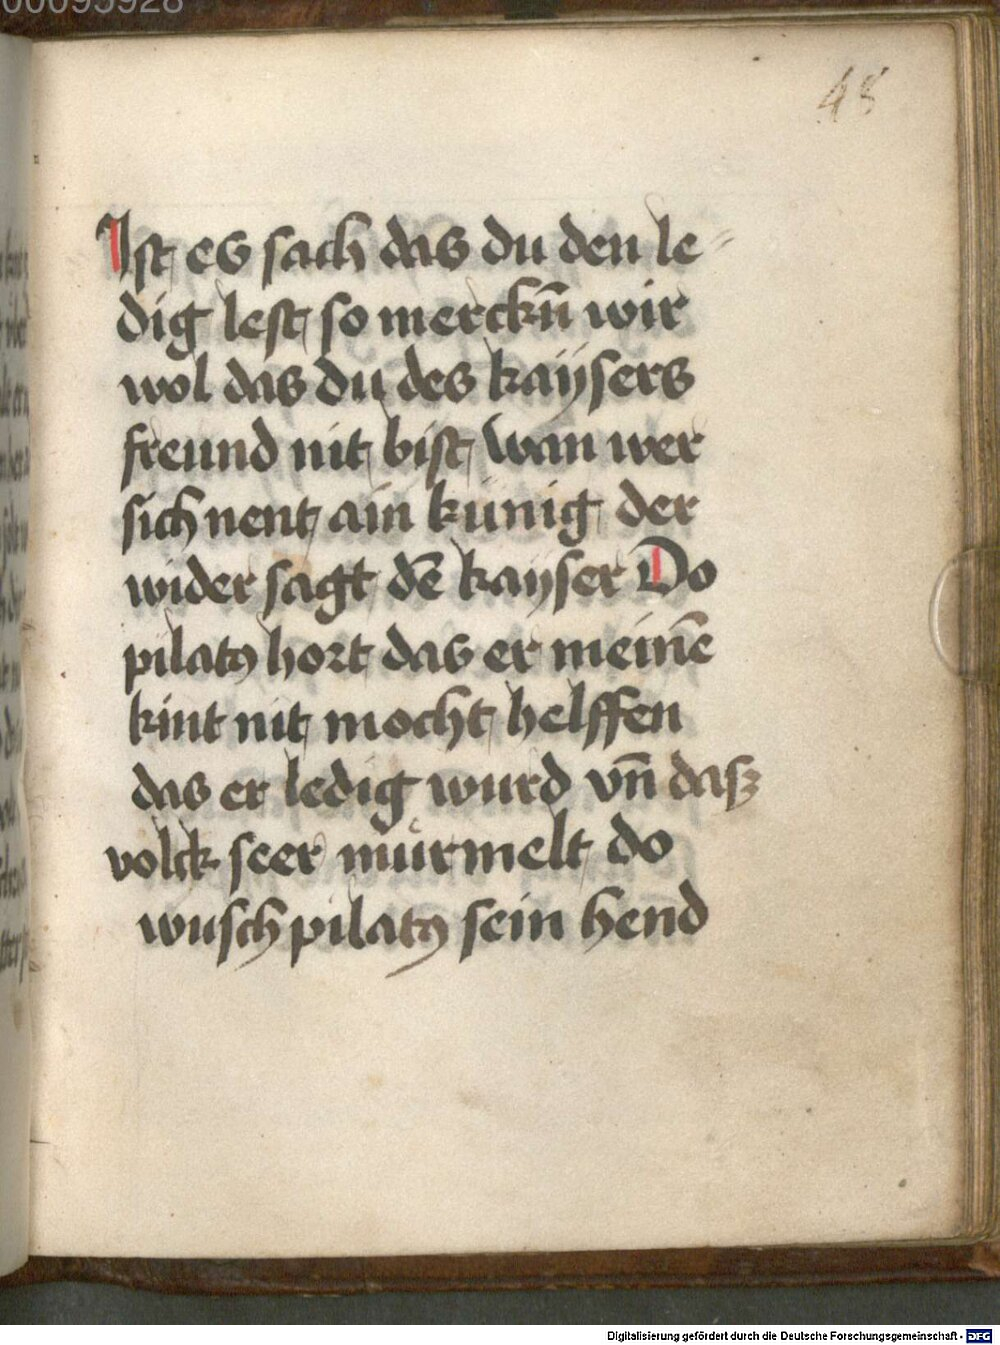 48
Ist es sach das du den le-
dig lest so merckn̄ wir
wol das du des kaÿsers
freund nit bist wan wer
sich nent ain künig der
wider sagt dē kayser Do
pilatꝰ hort das er meinē
kint nit mocht helffen
das er ledig wurd vn̄ dasz
volck seer mùrmelt do
wusch pilatꝰ sein hend
Digitalisierung gefördert durch die Deutsche Forschungsgemeinschaft - DFG